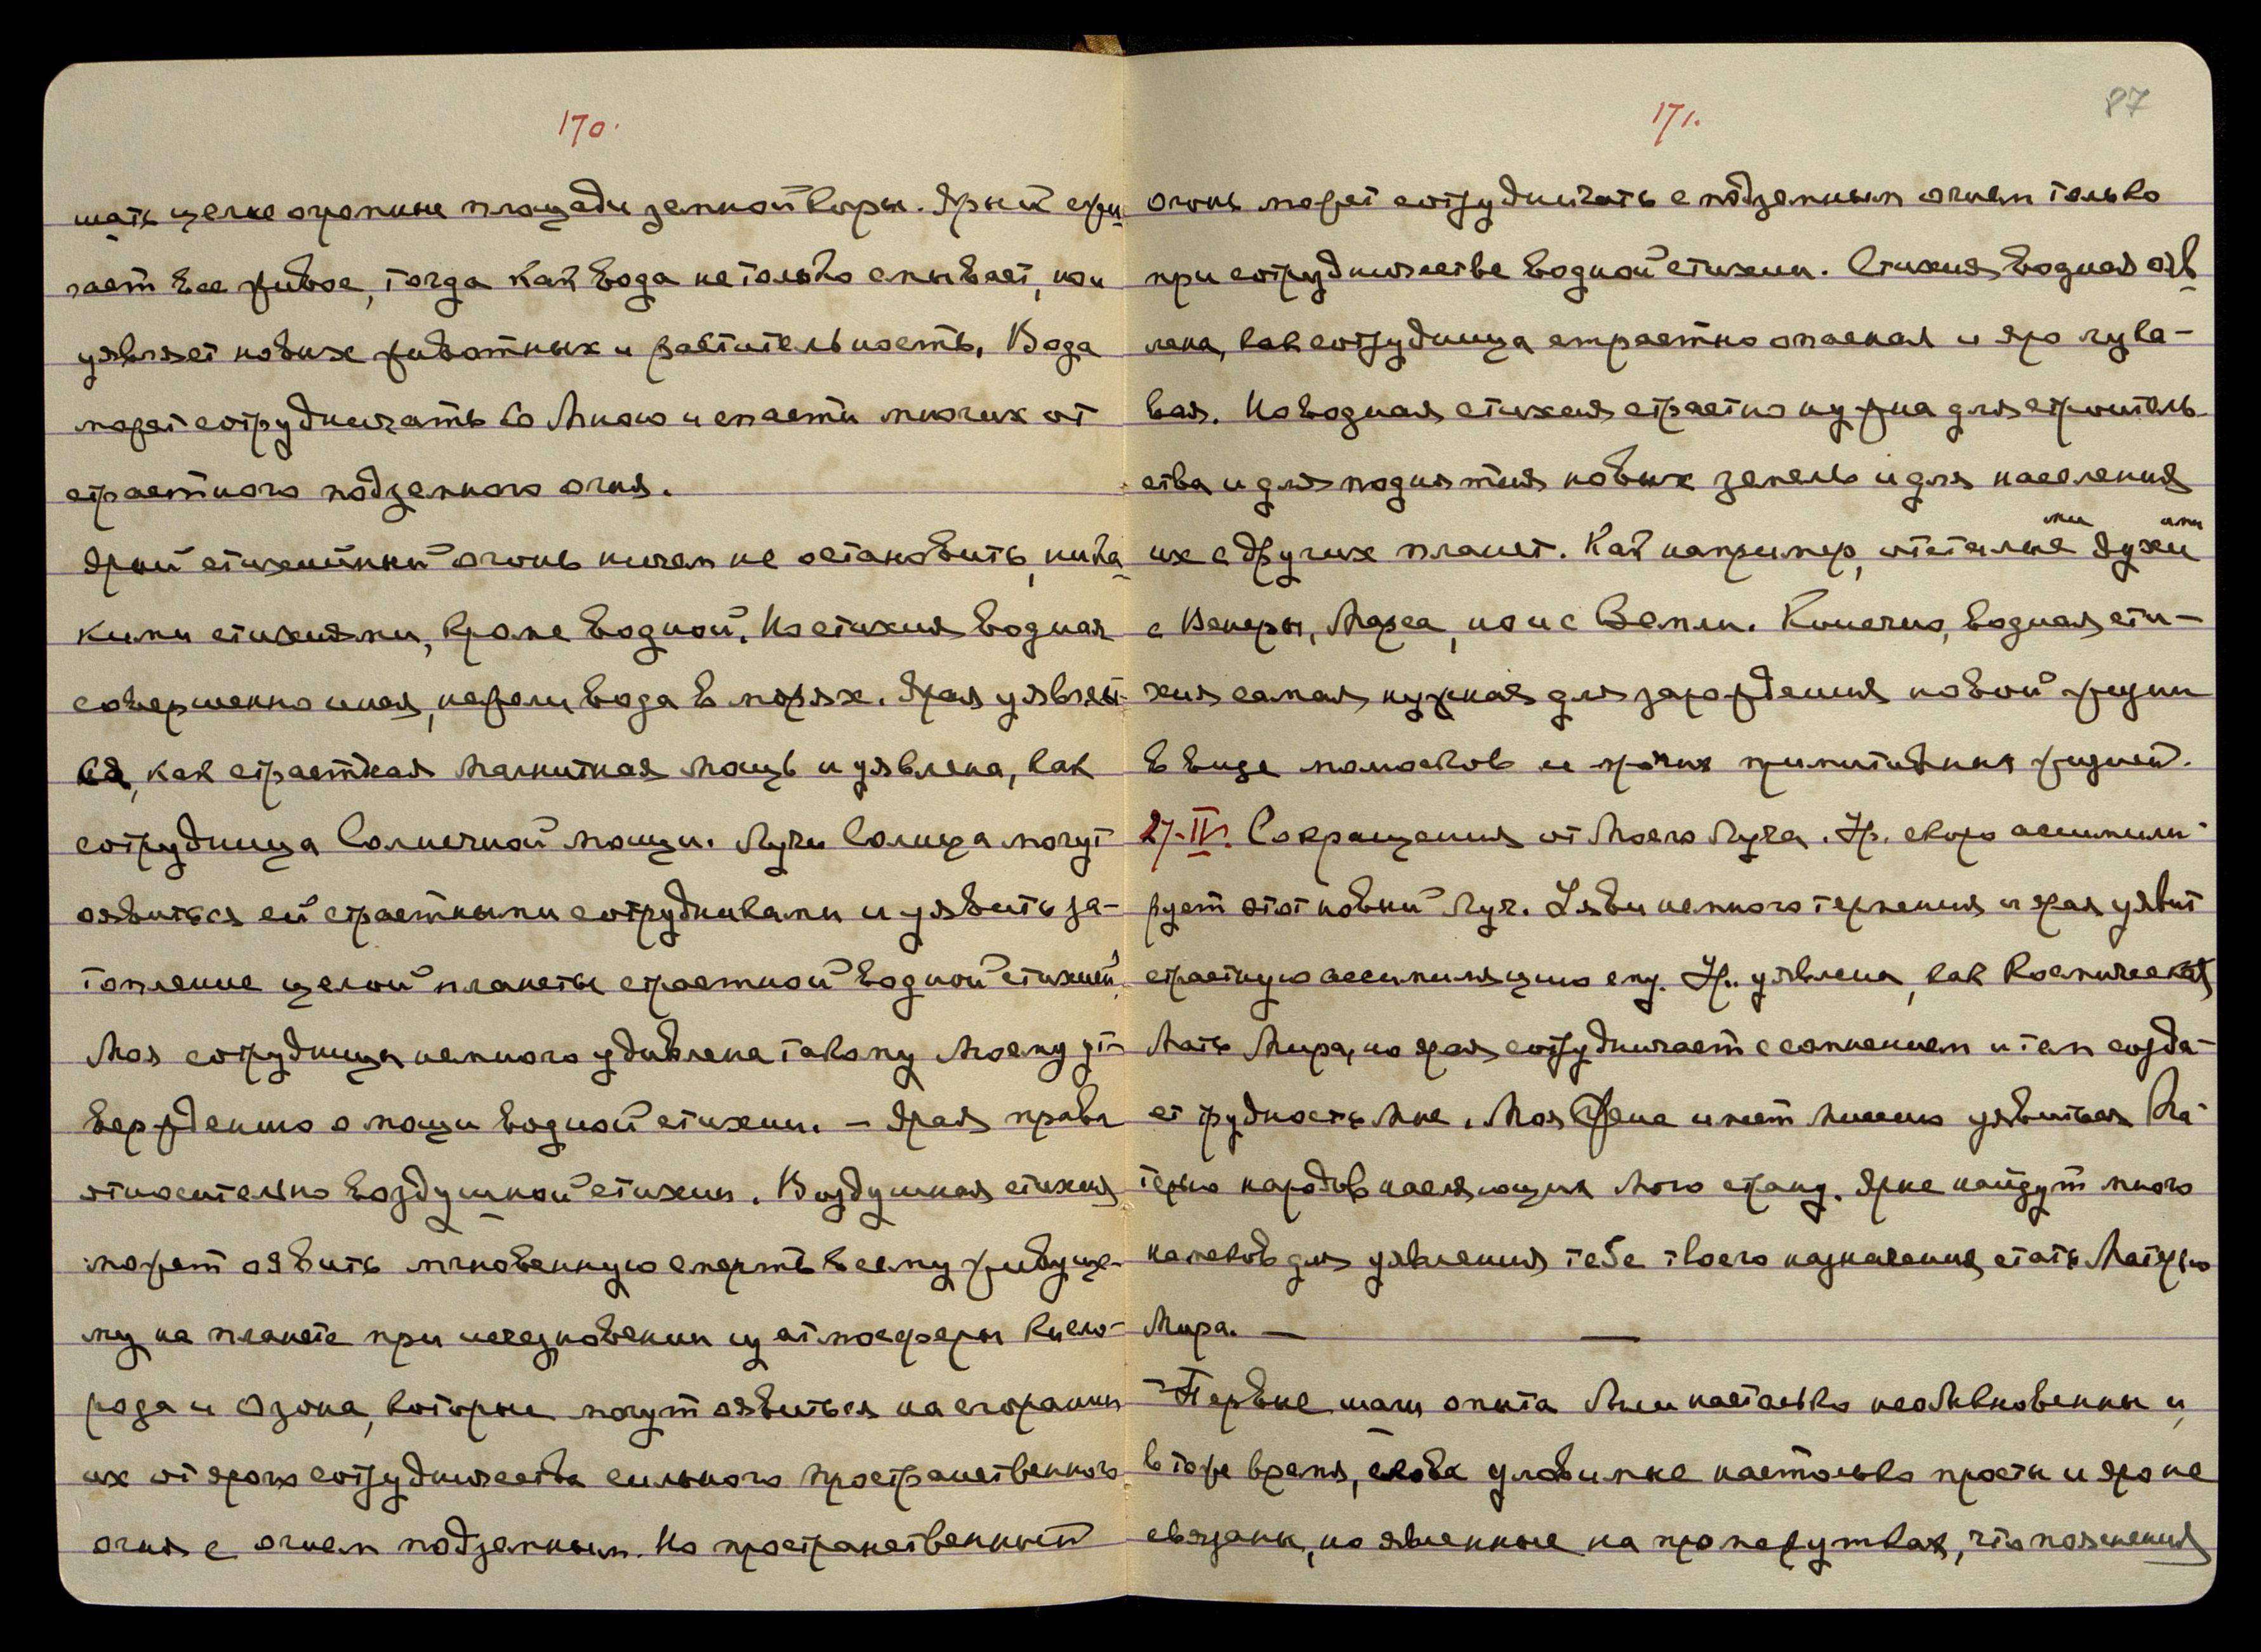 170.
шать целые огромные площади земной коры. Ярый сжи-
гает все живое, тогда как вода не только смывает, но и
уявляет новых животных и растительность. Вода
может сотрудничать со Мною и спасти многих от
страстного подземного огня.
Ярый стихийный огонь ничем не остановить, ника-
кими стихиями, кроме водной. Но стихия водная
совершенно иная, нежели вода в морях. Ярая уявляет-
ся, как страстная магнитная мощь и уявлена, как
сотрудница Солнечной мощи. Лучи Солнца могут
оявиться ей страстными сотрудниками и уявить за-
топление целой планеты страстной водной стихией.
Моя сотрудница немного удивлена такому Моему ут-
верждению о мощи водной стихии. — Ярая права
относительно воздушной стихии. Воздушная стихия
может оявить мгновенную смерть всему живуще-
му на планете при исчезновении из атмосферы Кисло-
рода и Озона, которые могут оявиться на сгорании
их от ярого сотрудничества сильного пространственного
огня с огнем подземным. Но пространственный
171.
87
огонь может сотрудничать с подземным огнем только
при сотрудничестве водной стихии. Стихия водная ояв-
лена, как сотрудница страстно опасная и яро чутка-
вая. Но водная стихия страстно нужна для строитель-
ства и для поднятия новых земель и для населения
их с других планет. Как например, отсталые духи
ми ами
с Венеры, Марса, но и с Земли. Конечно, водная сти-
хия самая нужная для зарождения новой жизни
в виде моллюсков и прочих примитивных жизней.
27-IV. Сокращения от Моего Луча. Ур. скоро ассимили-
рует этот новый Луч. Уяви немного терпения и ярая уявит
страстную ассимиляцию ему. Ур. уявлена, как Космическая
Мать Мира, но ярая сотрудничает с сомнением и тем созда-
ет трудность Мне. Моя Жена имеет миссию уявиться Ма-
терью народов населяющих Мою страну. Ярые найдут много
намеков для уявления тебе твоего назначения стать Матерью
Мира. — —
Первые шаги опыта были настолько необыкновенны и,
в то же время, слова уловимые настолько просты и яро не
связаны, но явленные на промежутках, что пояснения